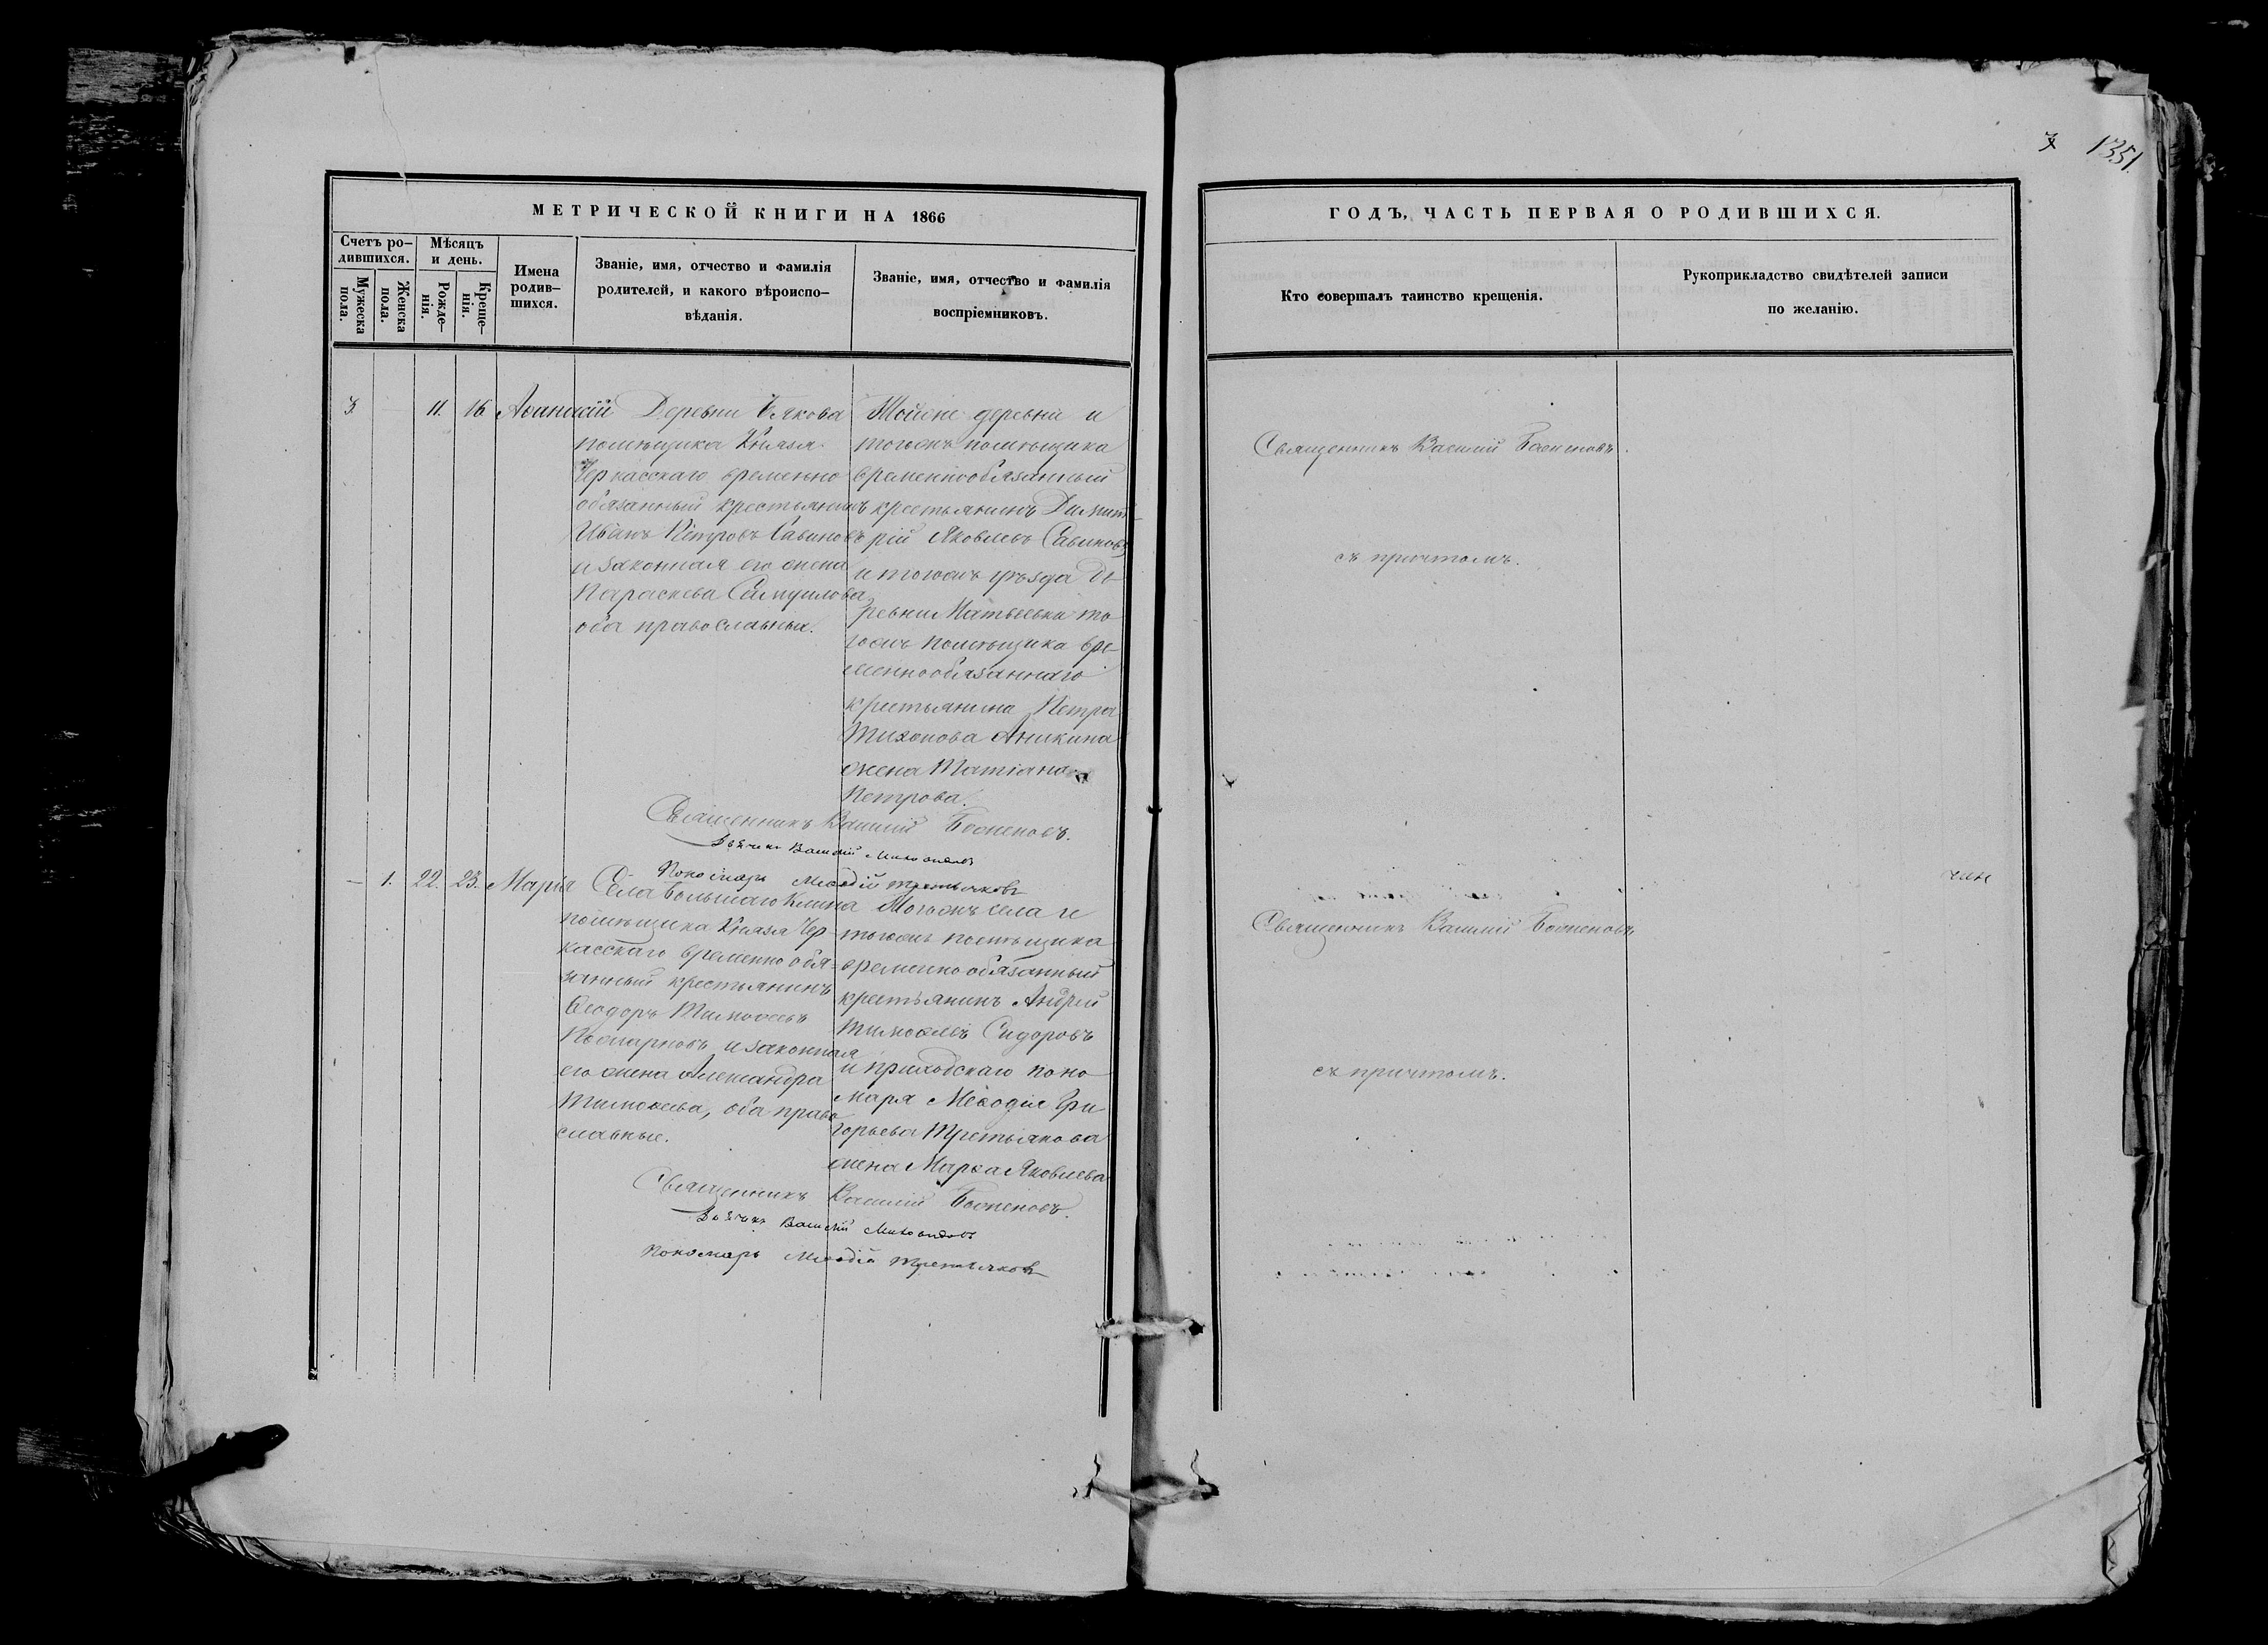 7 1351.
МЕТРИЧЕСКОЙ КНИГИ НА 1866
ГОДЪ, ЧАСТЬ ПЕРВАЯ О РОДИВШИХСЯ.
Счетъ ро-
дившихся.
Мужеска
пола.
Женска
пола.
Мѣсяцъ
и день.
Рожде-
нія.
Креще-
нія.
Имена
родив-
шихся.
Званіе, имя, отчество и фамилія
родителей, и какого вѣроиспо-
вѣданія.
Званіе, имя, отчество и фамилія
воспріемниковъ.
Кто совершалъ таинство крещенія.
Рукоприкладство свидѣтелей записи
по желанію.
3. 11. 16
Деревни
помѣщика Князя
Черкасскаго временно
обязанный крестьянинъ
Иванъ Петровъ Савиновъ
и законная его жена
Параскева Самуилова,
оба православныя.
Тойже деревни и
тогожъ помѣщика
временнообязанный
крестьянинъ Димит-
рій Яковлевъ Савиновъ
и тогожъ уѣзда де-
ревни Матвѣевки то
гожъ помѣщика вре-
меннообязаннаго
крестьянина Петра
Тихонова Аникина
жена Татіана
Петрова.
Священникъ Василій
съ причтомъ.
Священникъ Василій
Дьячекъ Василій
Пономарь Меѳодій Третьяковъ
— 1. 22. 23. Марія
Села Большаго Клина
помѣщика Князя Чер-
касскаго временно обя-
занный крестьянинъ
Ѳеодоръ Тимоѳеевъ
и законная
его жена Александра
Тимоѳеева, оба право
славные.
Тогожъ села и
тогожъ помѣщика
временно обязанный
крестьянинъ Андрей
Тимоѳеевъ Сидоровъ
и приходскаго поно
маря Меѳодія Гри
горьева Третьякова
жена Марѳа Яковлева
Священникъ Василій
съ причтомъ.
Священникъ Василій
Дьячекъ Василій
Пономарь Меѳодій Третьяковъ